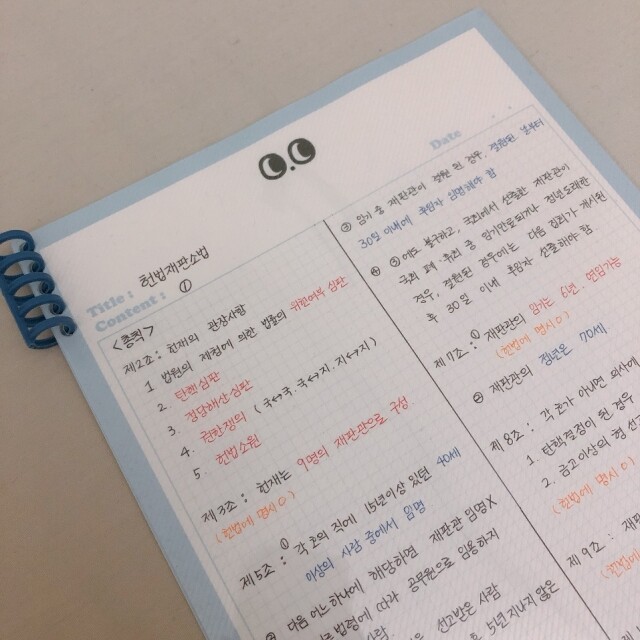 Date
Title : 헌법재판소법
Content : ①
<총칙>
제2조 : 헌재의 관장사항
1. 법원의 제청에 의한 법률의 위헌여부 심판
2. 탄핵심판
3. 정당해산심판
4. 권한쟁의 (국↔국, 국↔지, 지↔지)
5. 헌법소원
제3조 : 헌재는 9명의 재판관으로 구성
(헌법에 명시 O)
제5조 : ① 각 호의 직에 15년이상 있던 40세
이상의 사람 중에서 임명
② 다음 어느 하나에 해당하면 재판관 임명X
법령에 따라 공무원으로 임용하지
선고받은 사람
후 5년 지나지 않은
임기 중 재판관이 결원 된 경우, 결원된 날부터
30일 이내에 후임자 임명해야 함
에도 불구하고, 국회에서 선출한 재판관이
국회 폐·휴회 중 임기만료되거나 정년도래한
경우, 결원된 경우에는 다음 집회가 개시된
후 30일 이내 후임자 선출해야 함.
① 재판관의 임기는 6년, 연임가능
(헌법에 명시 O)
재판관의 정년은 70세.
제8조 : 각 호가 아니면 의사에
1. 탄핵결정이 된 경우
2. 금고이상의 형 선고
(헌법에 명시 O)
제9조 : 재판관
(헌법에